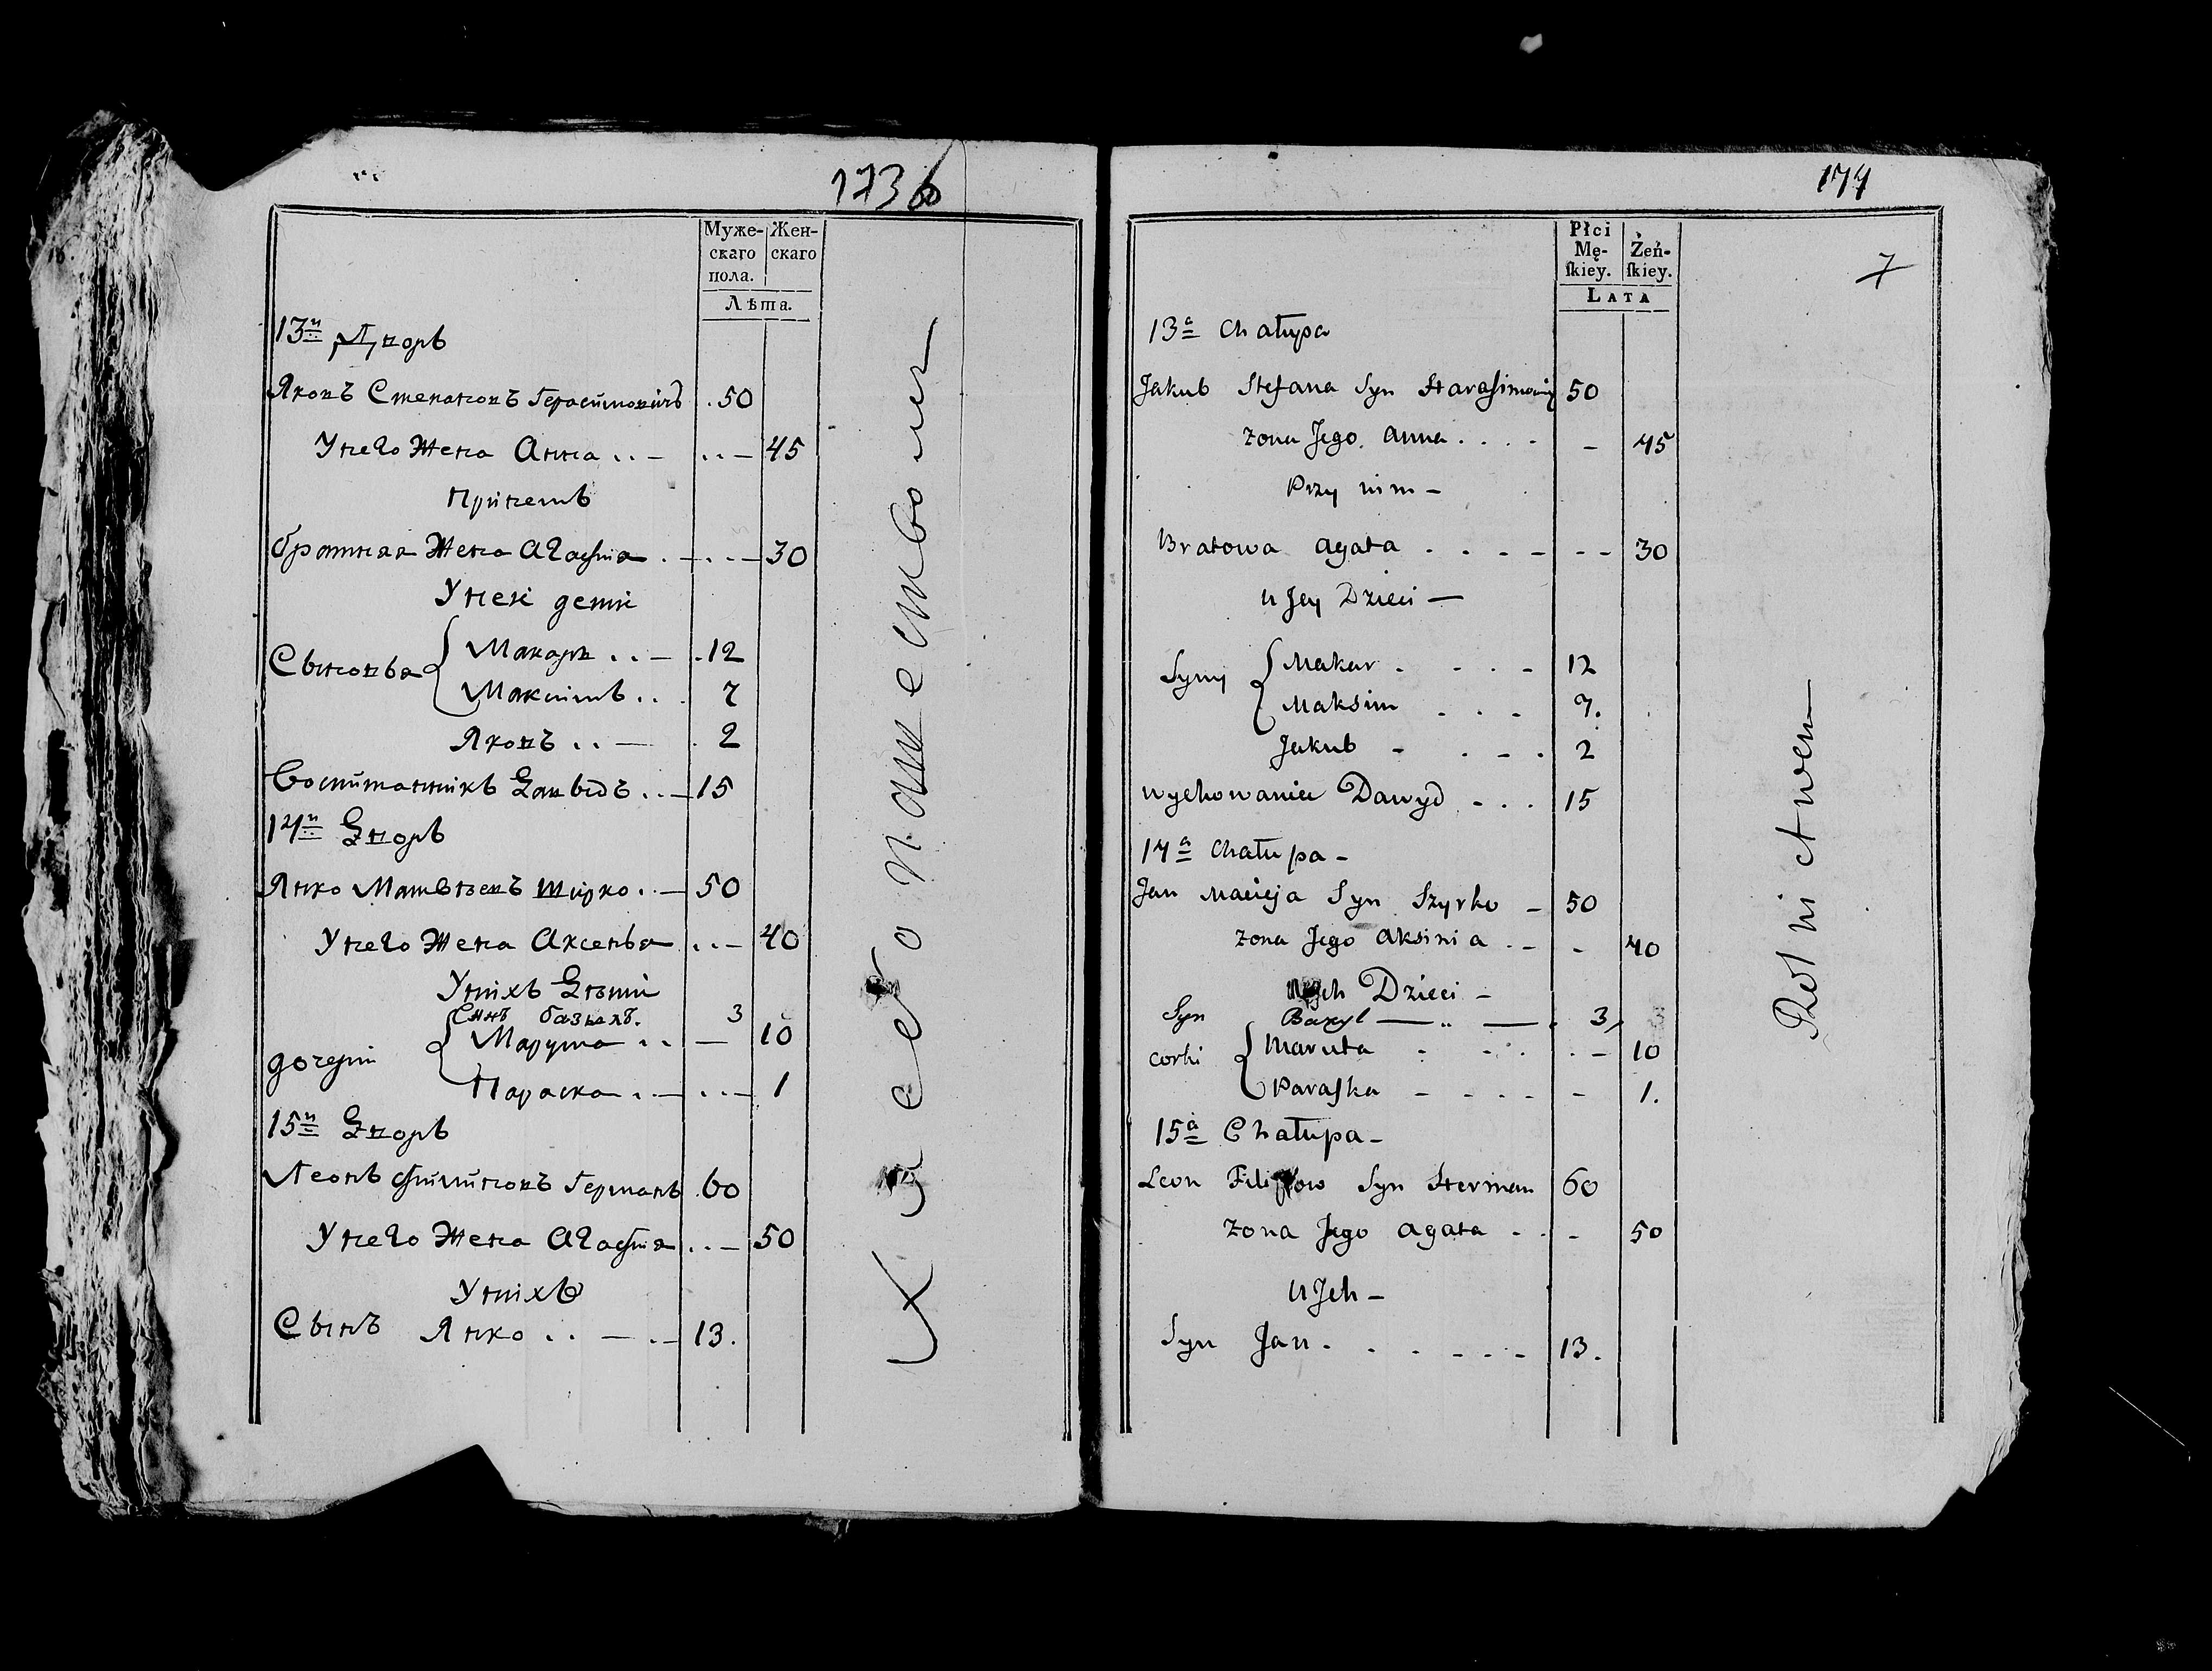 173б
Муже-
скаго
пола.
Жен-
скаго
Лѣта.
13й Дворъ
Яковъ Степановъ Герасимовичъ . 50
У него Жена Анна .. — .. — 45
При немъ
братняя Жена Агафия . — .. — 30
У неи дети
Сыновья { Макаръ .. — . 12
Максимъ .. . 7
Яковъ .. — . 2
Воспитанникъ Давыдъ .. — 15
14й Дворъ
Янко Матвѣевъ Ширко .. — 50
У него Жена Аксенья .. — 40
У нихъ Дѣти
Сынъ базыль. 3
дочери { Марута .. — 10
Параска .. — .. — 1
15й Дворъ
Леонъ Филиповъ Германъ . 60
У него Жена Агафия .. — 50
У нихъ
Сынъ Янко .. — .. — 13.
Хлебопашеством
174
7
Płci
Mę-
ſkiey.
Żeń-
ſkiey.
LATA
13a Chałupa
Jakub Stefana Syn Harasimowicz 50
zona Jego Anna . . . . – 45
Przy nim –
Bratowa Agata . . . – – – 30
u Jey Dzieci —
Syny { Makar . . . – 12
Maksim . . . 7.
Jakub – . – . 2
wychowaniec Dawyd . . . 15
14a Chałupa –
Jan Macieja Syn Szyrko – 50
zona Jego Aksinia . – – 40
u Jch Dzieci –
Syn Bazyl — .. — . 3,
corki { Maruta . . . . – 10
Paraska – . . . – 1.
15a Chałupa –
Leon Filipow Syn Herman 60
zona Jego Agata . . – 50
u Jch –
Syn Jan . . . . . . 13.
Rolnictwem